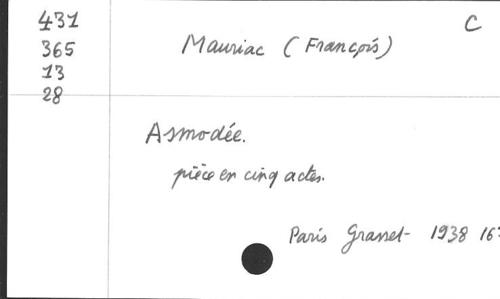 431
365
13
28
C
Mauriac (François)
Asmodée.
pièce en cinq actes.
Paris Grasset 1938 16